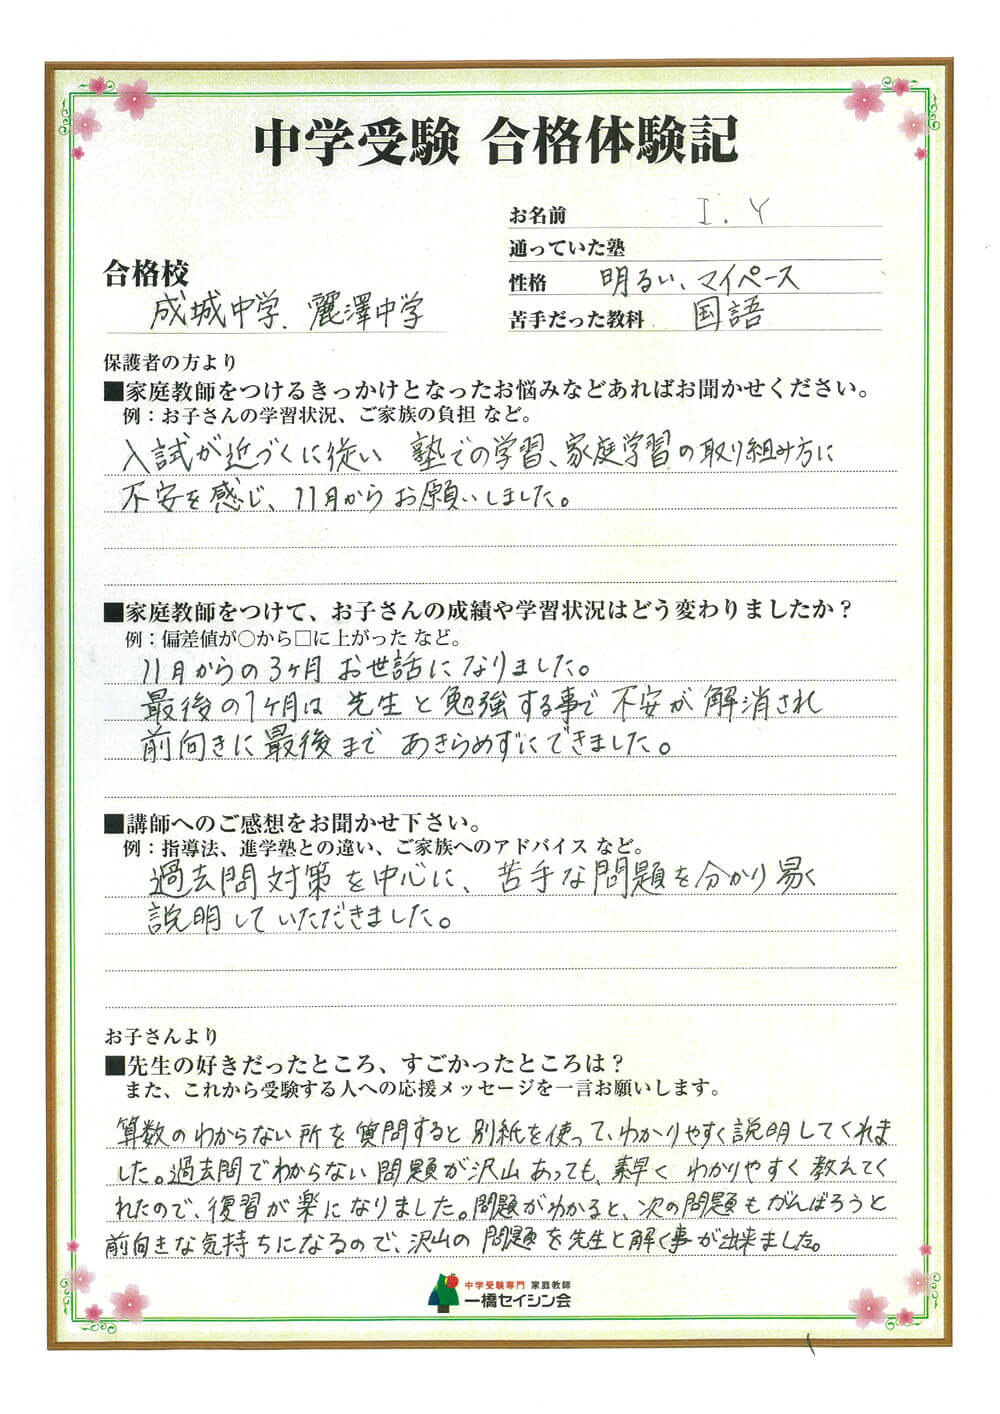 中学受験 合格体験記
お名前 I.Y
通っていた塾
合格校
性格 明るい、マイペース
成城中学、麗澤中学
苦手だった教科 国語
保護者の方より
■家庭教師をつけるきっかけとなったお悩みなどあればお聞かせください。
例：お子さんの学習状況、ご家族の負担 など。
入試が近づくに従い 塾での学習、家庭学習の取り組み方に
不安を感じ、11月からお願いしました。
■家庭教師をつけて、お子さんの成績や学習状況はどう変わりましたか？
例：偏差値が○から□に上がった など。
11月からの3ヶ月 お世話になりました。
最後の1ヶ月は 先生と勉強する事で不安が解消され
前向きに最後まで あきらめずにできました。
■講師へのご感想をお聞かせ下さい。
例：指導法、進学塾との違い、ご家族へのアドバイス など。
過去問対策を中心に、苦手な問題を分かり易く
説明していただきました。
お子さんより
■先生の好きだったところ、すごかったところは？
また、これから受験する人への応援メッセージを一言お願いします。
算数のわからない所を質問すると別紙を使って、わかりやすく説明してくれま
した。過去問でわからない問題が沢山あっても、素早く わかりやすく教えてく
れたので、復習が楽になりました。問題がわかると、次の問題もがんばろうと
前向きな気持ちになるので、沢山の問題を先生と解く事が出来ました。
中学受験専門 家庭教師
一橋セイシン会